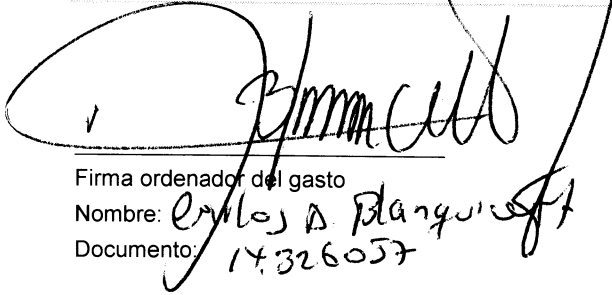 Firma ordenador del gasto
Nombre: Carlos A. Blanquicett
Documento: 14.326057